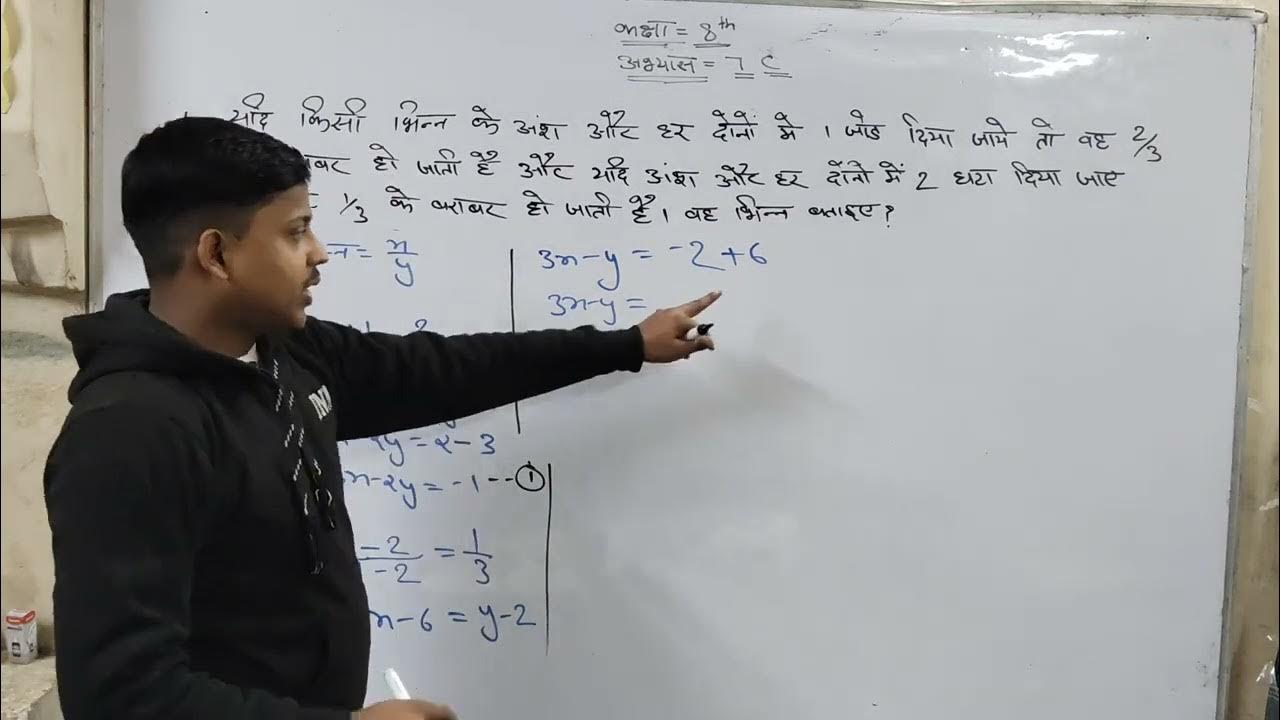 कक्षा = 8th
अभ्यास = 7 C
यदि किसी भिन्न के अंश और हर दोनों मे 1 जोड दिया जाये तो वह 2/3
हो जाती है और यदि अंश और हर दोंनो में 2 घटा दिया जाए
1/3 के बराबर हो जाती है। वह भिन्न बताइए?
= x/y
3x-y = -2+6
3x-y =
2y = 2-3
x-2y = -1 -- ①
-2/-2 = 1/3
x-6 = y-2